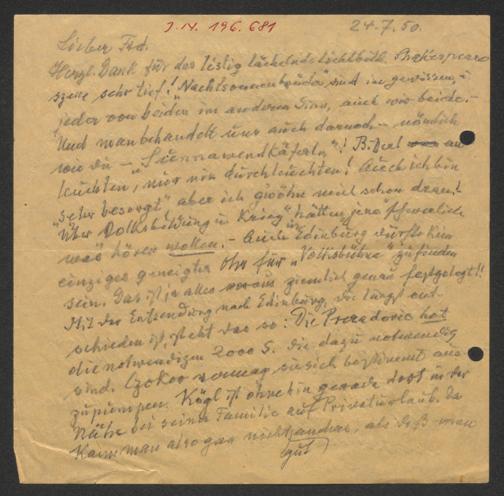 J.N. 196.681
24.7.50.
Lieber Frd.
Herzl. Dank für das listig lächelnde Lichtbild.
szene sehr tief! "Nachtsonnenbrüder" sind in gewissem,
jeder von beiden im anderen Sinn, auch wir beide.-
Und man behandelt uns auch darnach - nämlich
wie die - "Sunnawendkäferln"!
leuchten, nur nin durchleuchten! Auch ich bin
"sehr besorgt" aber ich gwöhn mich schon daran!
Über "Volksbildung u Krieg" hätten "jene" schwerlich
was hören wollen. - Auch in Edinburg dürfte kein
einziges geneigtes Ohr für "Volksbühne" zu finden
sein. Das ist ja alles voraus ziemlich genau festgelegt!!
Mit der Entsendung nach Edinburg, die längst ent-
schieden ist, steht das so: Die Preradovic hat
die notwendigen 2000 S. die dazu notwendig
sind. Csokor vermag sie sich bestimmt aus-
zupumpen. Kogl ist ohnehin gerade dort in der
Nähe bei seiner Familie auf Privaturlaub. Da
kann man also gar nicht anders, als daß man
gut